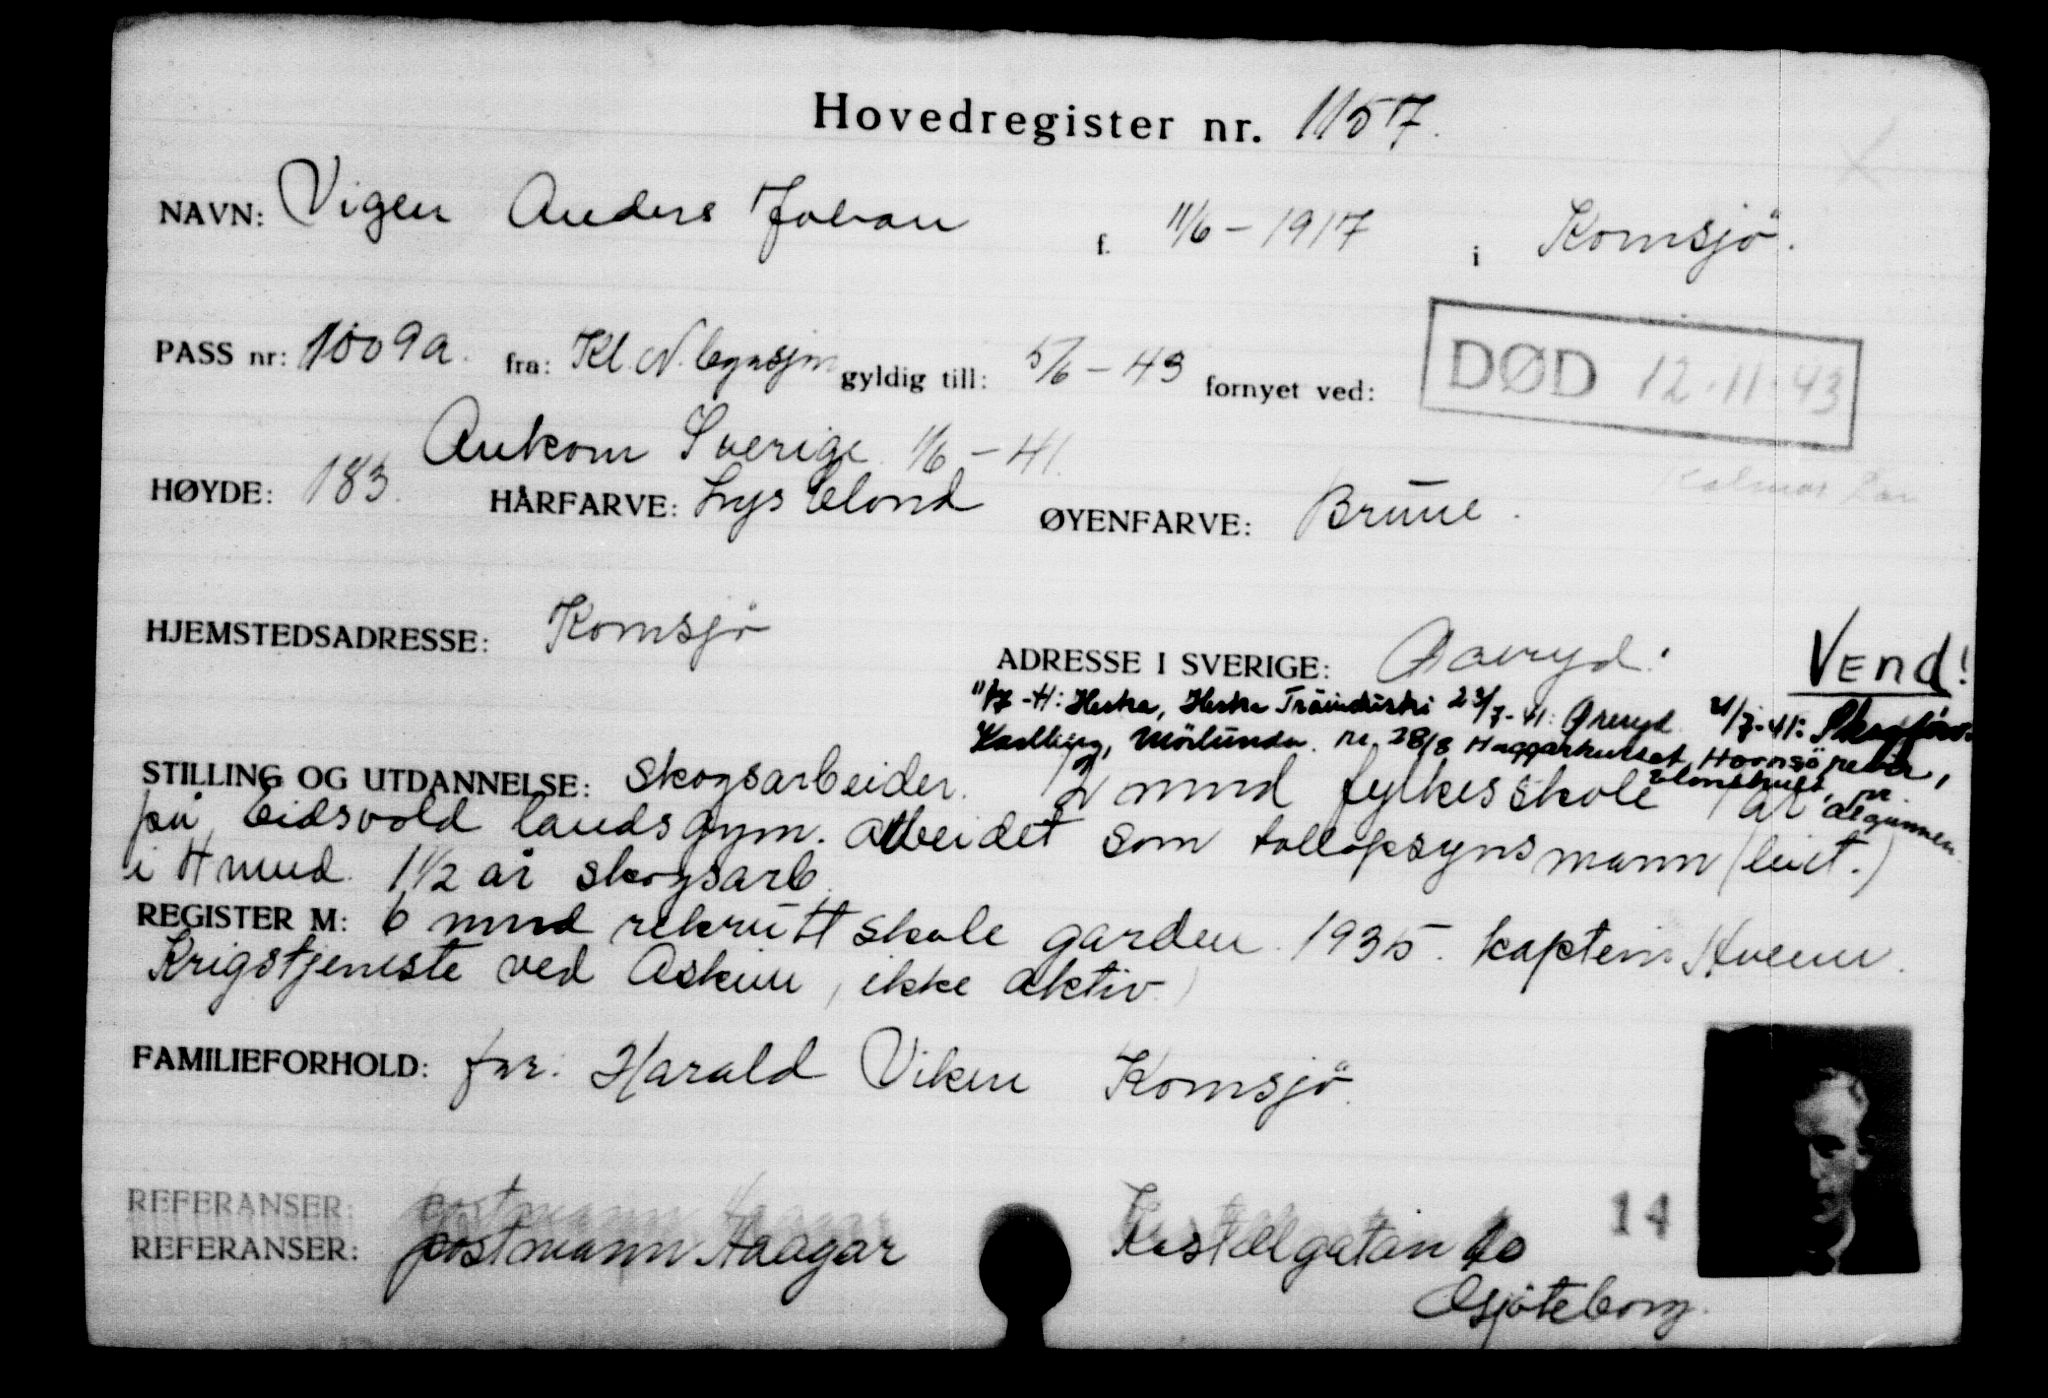 Hovedregister nr. 1157.
NAVN: Vigen Anders Johan f. 11/6 - 1917 i Kornsjö.
PASS nr: 1009a. fra: Kl. N. gyldig till: 5/6 - 43 fornyet ved:
DØD 12.11.43
Ankom Sverige 1/6 - 41.
Kalmar
HØYDE: 183. HÅRFARVE: Lys blond ØYENFARVE: Brune.
HJEMSTEDSADRESSE: Kornsjö
ADRESSE I SVERIGE: Öreryd. Vend!
11/7 - 41: Hestra, Hestra Träindustri 23/7 - 41: Öreryd 31/7 - 41:
Mörlunda. 28/8 Haggarhultet, Hornsö
Blomstermåla
STILLING OG UTDANNELSE: Skogsarbeider. mnd fylkesskole 1 år
på Eidsvold landsgym. arbeidet som tolloppsynsmann (levt.)
i 4 mnd. 1 1/2 år skogsarb.
REGISTER M: 6 mnd rekruttskole garden. 1935. kaptein
Krigstjeneste ved Askim, ikke aktiv.)
FAMILIEFORHOLD: far: Harald Viken Kornsjö.
REFERANSER: postmann
REFERANSER: postmann Haagar Kastellgatan 10 14
Gjöteborg.